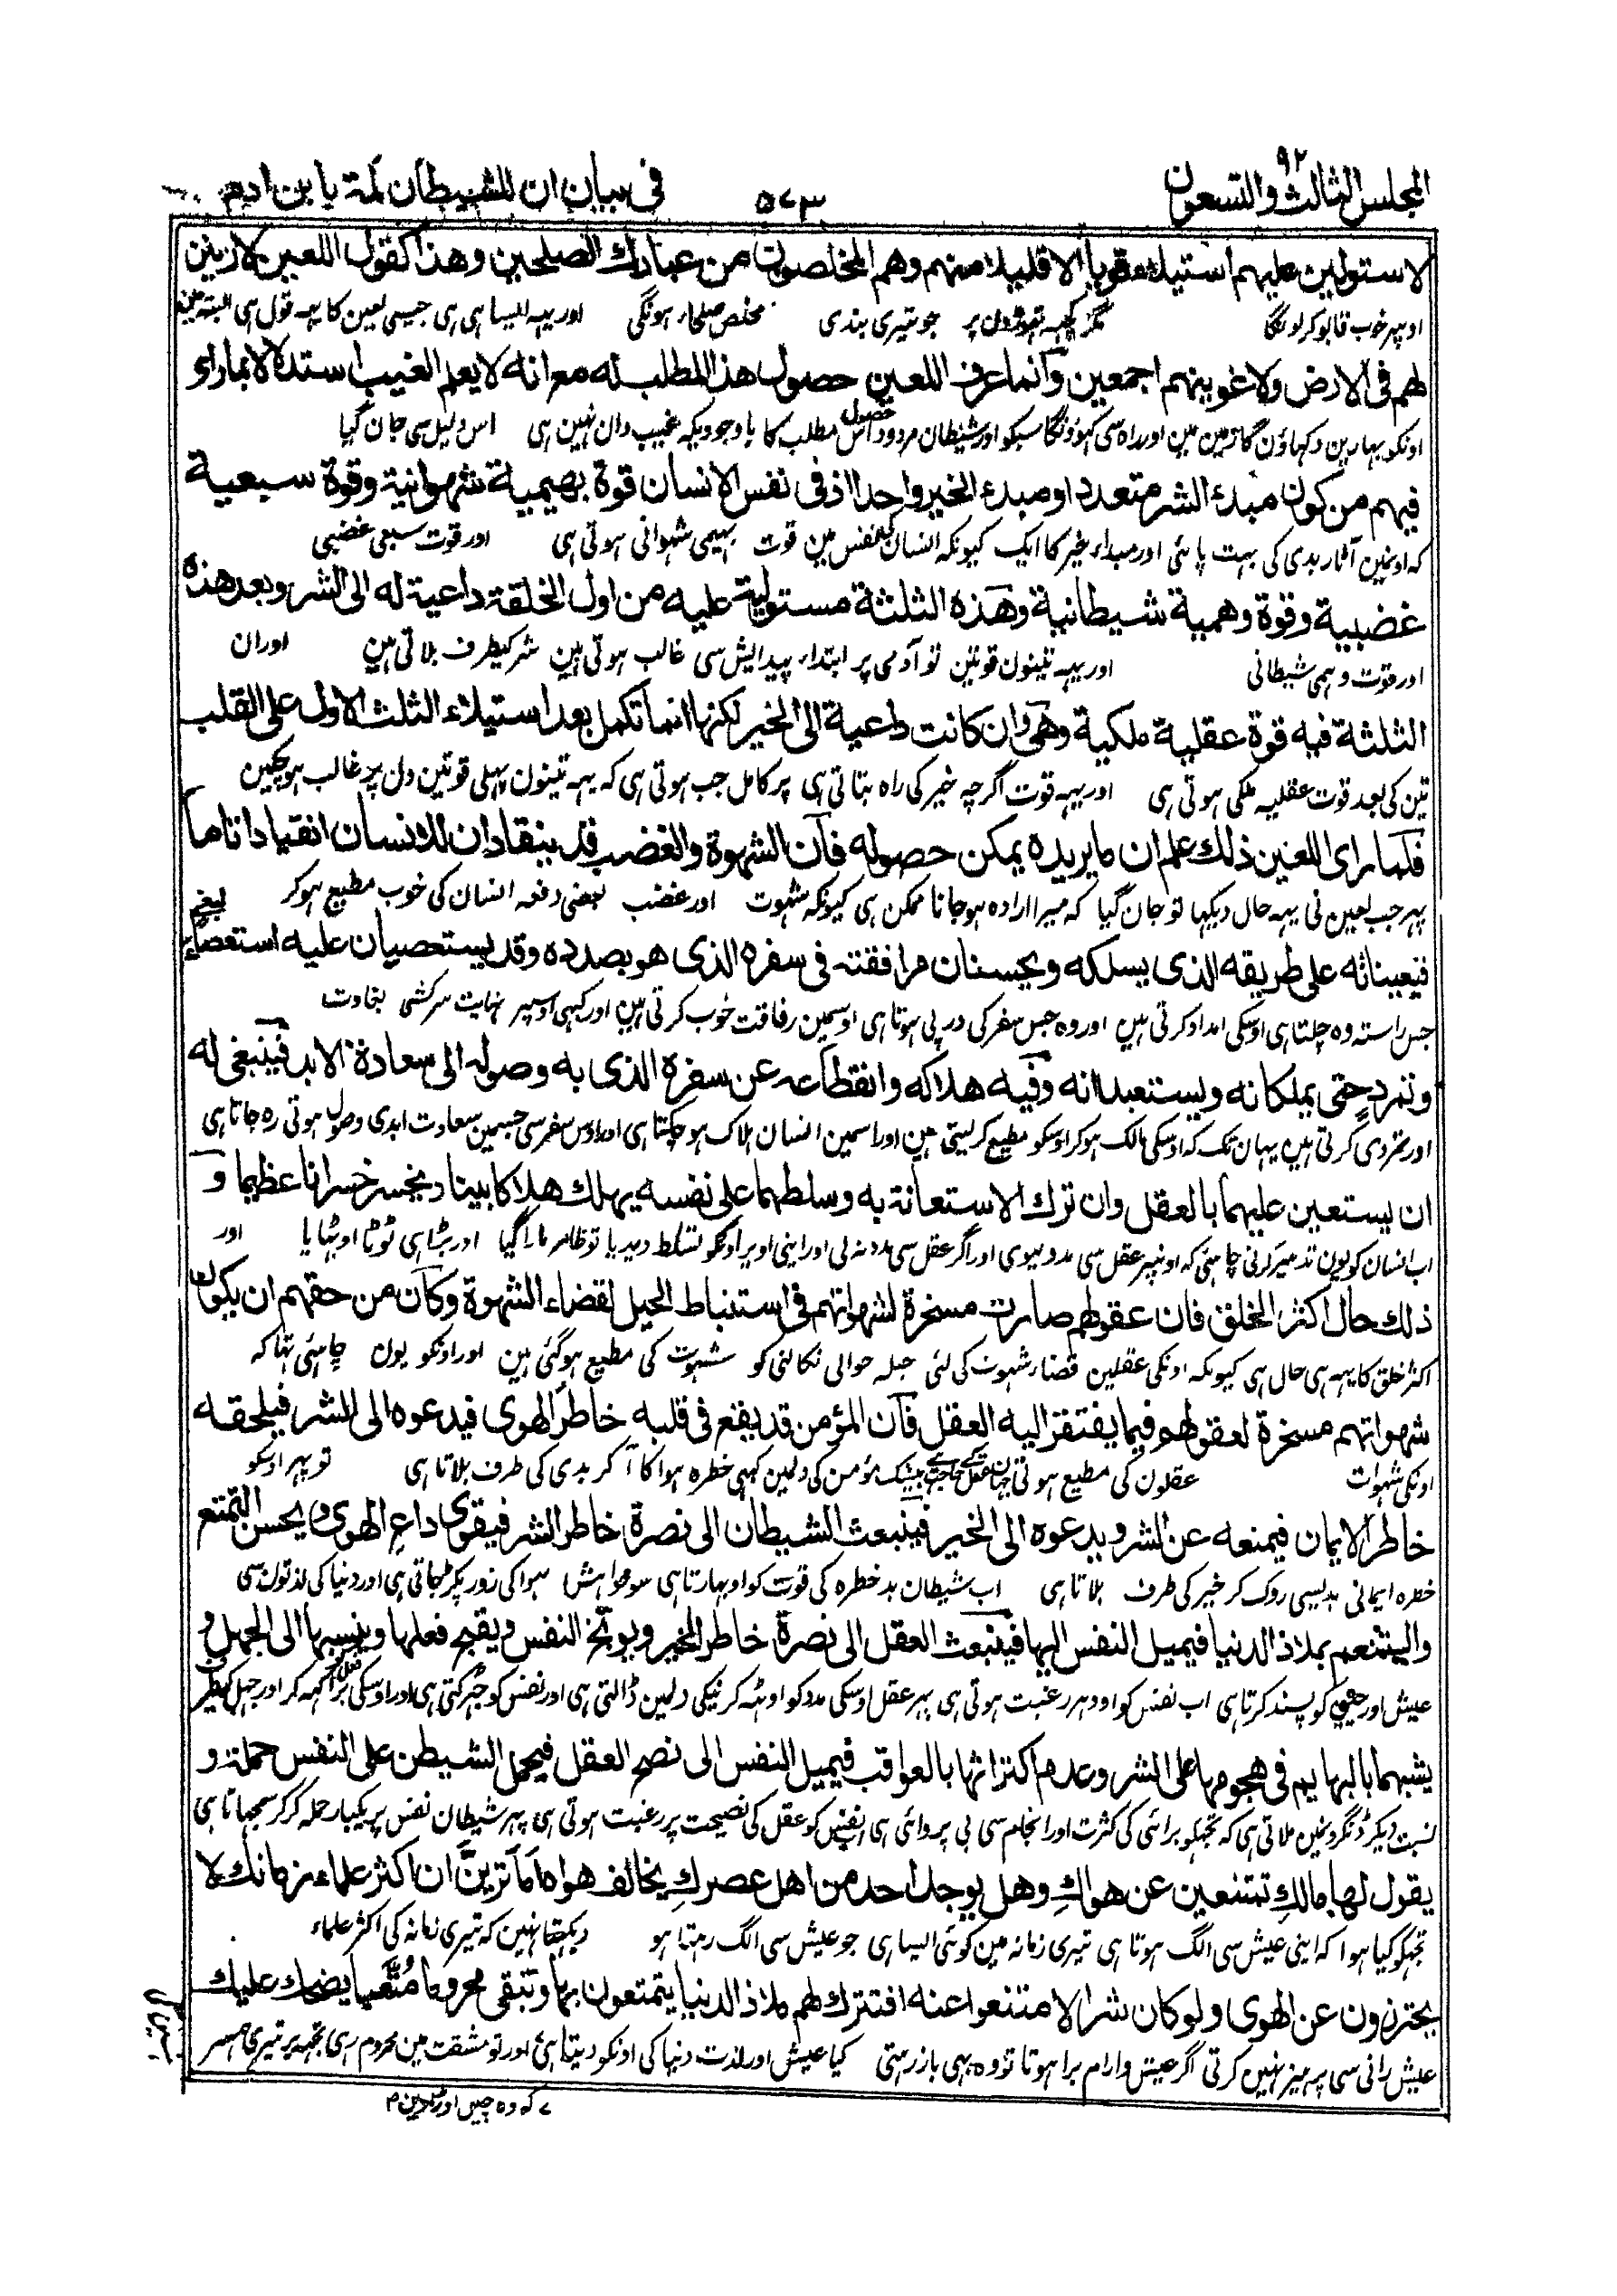 المجلس الثالث والتسعون ٩٢
٥٧٣
فی بیان ان للشیطان لمة بابن ادم
لاستولین علیهم استیلاء قویا الا قلیلا منهم وهم المخلصون من عبادك الصلحین وهذا کقول اللعین لازینن
اونپر خوب قابو کر لونگا مگر کچہہ تہوڑون پر جو تیری بندی مخلص صلحاء ہونگی اور یہہ ایسا ہی ہی جیسی لعین کا یہہ قول ہی البتہ مین
لهم فی الارض ولاغوینهم اجمعین وانما عرف اللعین حصول هذا المطلب له مع انه لا یعلم الغیب استدلالا بما رای
اونکو بہارین دکہاؤن گا زمین مین اور راہ سی کہوؤنگا سبکو اور شیطان مردود اس حصول مطلب کا باوجودیکہ غیب دان نہین ہی اس دلیل سی جان گیا
فیهم من کون مبدء الشر متعددا ومبدء الخیر واحدا اذ فی نفس الانسان قوة بهیمیة شهوانیة وقوة سبعیة
کہ اونمین آثار بدی کی بہت پائی اور مبداء خیر کا ایک کیونکہ انسان کی نفس مین قوت بہیمی شہوانی ہوتی ہی اور قوت سبعی غضبی
غضبیة وقوة وهمیة شیطانیة وهذه الثلثة مستولیة علیه من اول الخلقة داعیة له الی الشر وبعد هذه
اور قوت وہمی شیطانی اور یہہ تینون قوتین تو آدمی پر ابتداء پیدایش سی غالب ہوتی ہین شر کیطرف بلاتی ہین اور ان
الثلثة فیه قوة عقلیة ملکیة وهی وان کانت داعیة الی الخیر لکنها انما تکمل بعد استیلاء الثلث الاول علی القلب
تین کی بعد قوت عقلیہ ملکی ہوتی ہی اور یہہ قوت اگرچہ خیر کی راہ بتاتی ہی پر کامل جب ہوتی ہی کہ یہہ تینون پہلی قوتین دل پر غالب ہو چکین
فلما رای اللعین ذلك علم ان ما یریده یمکن حصوله فان الشهوة والغضب قد ینقادان للانسان انقیادا تاما
پہر جب لعین نی یہہ حال دیکہا تو جان گیا کہ میرا ارادہ ہو جانا ممکن ہی کیونکہ شہوت اور غضب بعضی دفعہ انسان کی خوب مطیع ہو کر
فیعینانه علی طریقه الذی یسلکه ویحسنان مرافقته فی سفره الذی هو بصدده وقد یستعصیان علیه استعصاء بغی
جس راستہ وہ چلتا ہی اوسکی امداد کرتی ہین اور وہ جس سفر کی درپی ہوتا ہی اوسمین رفاقت خوب کرتی ہین اور کبہی اوسپر نہایت سرکشی بغاوت
وتمرد حتی یملکانه ویستعبدانه وفیه هلاکه وانقطاعه عن سفره الذی به وصوله الی سعادة الابد فینبغی له
اور تمردی کرتی ہین یہان تک کہ اوسکی مالک ہو کر اوسکو مطیع کر لیتی ہین اور اسمین انسان ہلاک ہو چکتا ہی اور اوس سفر سی جسمین سعادت ابدی وصول ہوتی رہ جاتا ہی
ان یستعین علیهما بالعقل وان ترك الاستعانة به وسلطهما علی نفسه یهلك هلاکا بینا ویخسر خسرانا عظیما و
اب انسان کو یون تدبیر کرنی چاہئی کہ اونپر عقل سی مدد لیوی اور اگر عقل سی مدد نہ لی اور اپنی اوپر اونکو تسلط دیدیا تو ظاہر مارا گیا اور بڑا ہی ٹوٹا اوٹہایا اور
ذلك حال اکثر الخلق فان عقولهم صارت مسخرة لشهواتهم فی استنباط الحیل لقضاء الشهوة وکان من حقهم ان یکون
اکثر خلق کا یہہ ہی حال ہی کیونکہ اونکی عقلین قضاء شہوت کی لئی حیلہ حوالی نکالنی کو شہوت کی مطیع ہوگئی ہین اور اونکو یون چاہئی تہا کہ
شهواتهم مسخرة لعقولهم فیما یفتقر الیه العقل فان المؤمن قد یقع فی قلبه خاطر الهوی فیدعوه الی الشر فیلحقه
اونکی شہوات عقلون کی مطیع ہوتی بیشک مؤمن کی دلمین کبہی خطرہ ہوا کا آ کر بدی کی طرف بلاتا ہی تو پہر اوسکو
خاطر الایمان فیمنعه عن الشر ویدعوه الی الخیر فینبعث الشیطان الی نصرة خاطر الشر فیقوی داع الهوی ویحسن التمتع
خطرہ ایمانی بدیسی روک کر خیر کی طرف بلاتا ہی اب شیطان بد خطرہ کی قوت کو اوبہارتا ہی سو خواہش ہوا کی زور پکڑ جاتی ہی اور دنیا کی لذتون سی
والتنعم بملاذ الدنیا فیمیل النفس الیها فینبعث العقل الی نصرة خاطر الخیر ویوبخ النفس ویقبح فعلها وینسبها الی الجهل و
عیش اور کو پسند کرتا ہی اب نفس کو اودہر رغبت ہوتی ہی پہر عقل اوسکی مدد کو اوٹہہ کر نیکی دلمین ڈالتی ہی اور نفس کو جہڑکتی ہی اور اوسکی فعل کو برا کہہ کر اور جہل کیطرف
یشبهها بالبهایم فی هجومها علی الشر وعدم اکتراثها بالعواقب فیمیل النفس الی نصح العقل فیحمل الشیطن علی النفس حملة و
نسبت دیکر ڈنگرونمین ملاتی ہی کہ تجہکو برائی کی کثرت اور انجام سی بی پروائی ہی اب نفس کو عقل کی نصیحت پر رغبت ہوتی ہی پہر شیطان نفس پر یکبار حملہ کر کر سمجہاتا ہی
یقول لها مالك تمتنعین عن هواك وهل یوجد احد من اهل عصرك یخالف هواه اما ترین ان اکثر علماء زمانك لا
تجہکو کیا ہوا کہ اپنی عیش سی الگ ہوتا ہی تیری زمانہ مین کوئی ایسا ہی جو عیش سی الگ رہتا ہو دیکہتا نہین کہ تیری زمانہ کی اکثر علماء
یحترزون عن الهوی ولو کان شرا لامتنعوا عنه افتترك لهم ملاذ الدنیا یتمتعون بها وتبقی محروما متعبا یضحك علیك
عیش رانی سی پرہیز نہین کرتی اگر عیش وارام برا ہوتا تو وہ بہی باز رہتی کیا عیش اور لذت دنیا کی اونکو دیتا ہی اور تو مشقت مین محروم رہی تجہہ پر تیری ہمسر